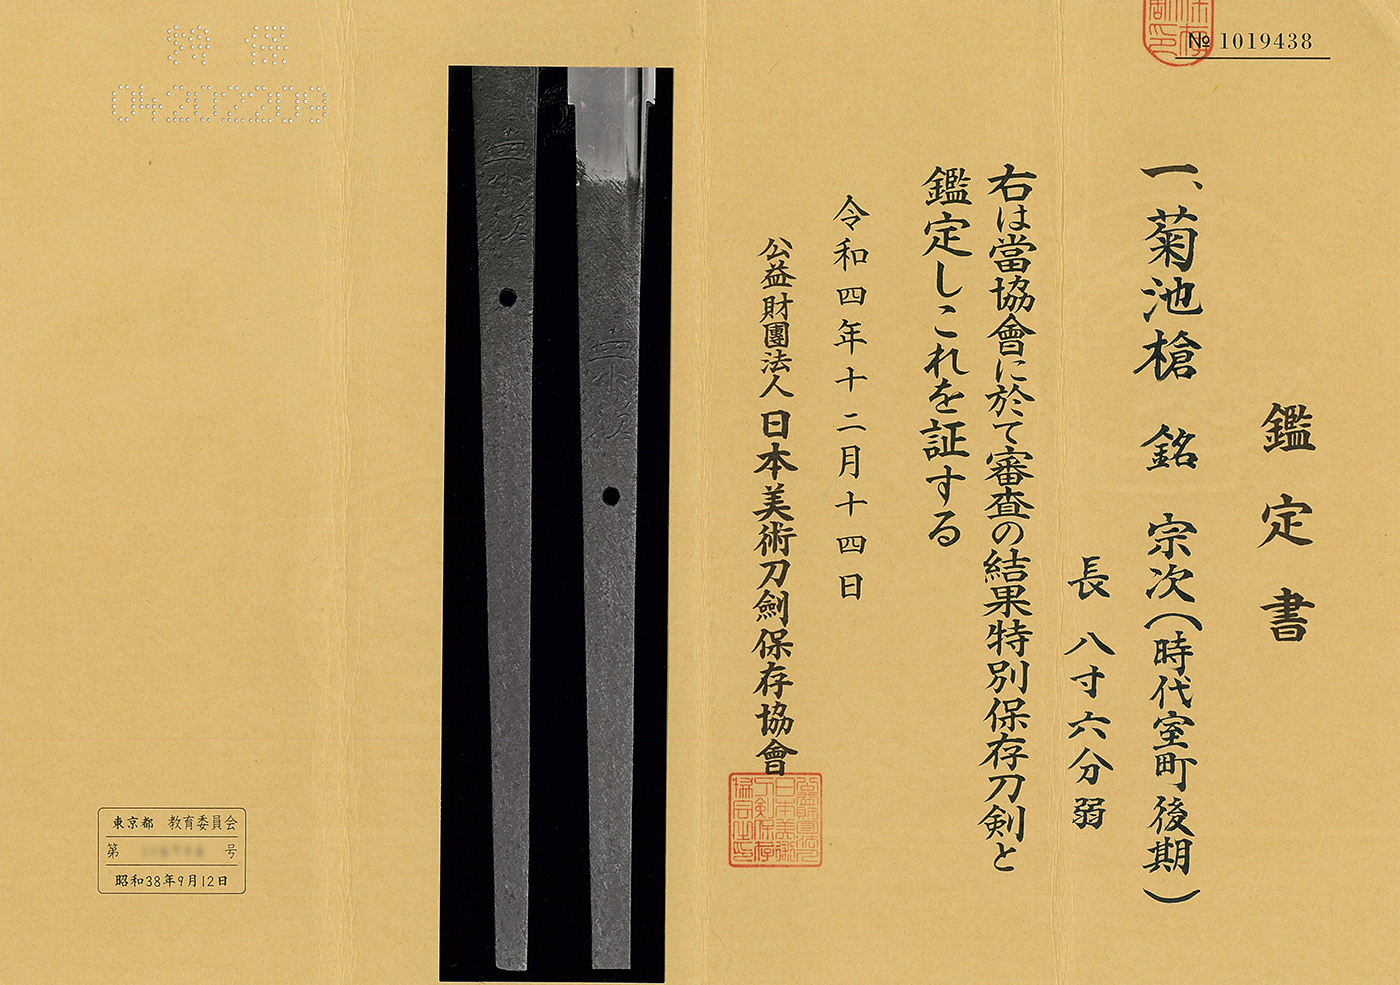 № 1019438
鑑定書
一、菊池槍 銘 宗次(時代室町後期)
長 八寸六分弱
右は當協會に於て審査の結果特別保存刀剣と
鑑定しこれを証する
令和四年十二月十四日
公益財團法人 日本美術刀劍保存協會
宗次
宗次
特保
04202209
東京都 教育委員会
第 号
昭和38年9月12日